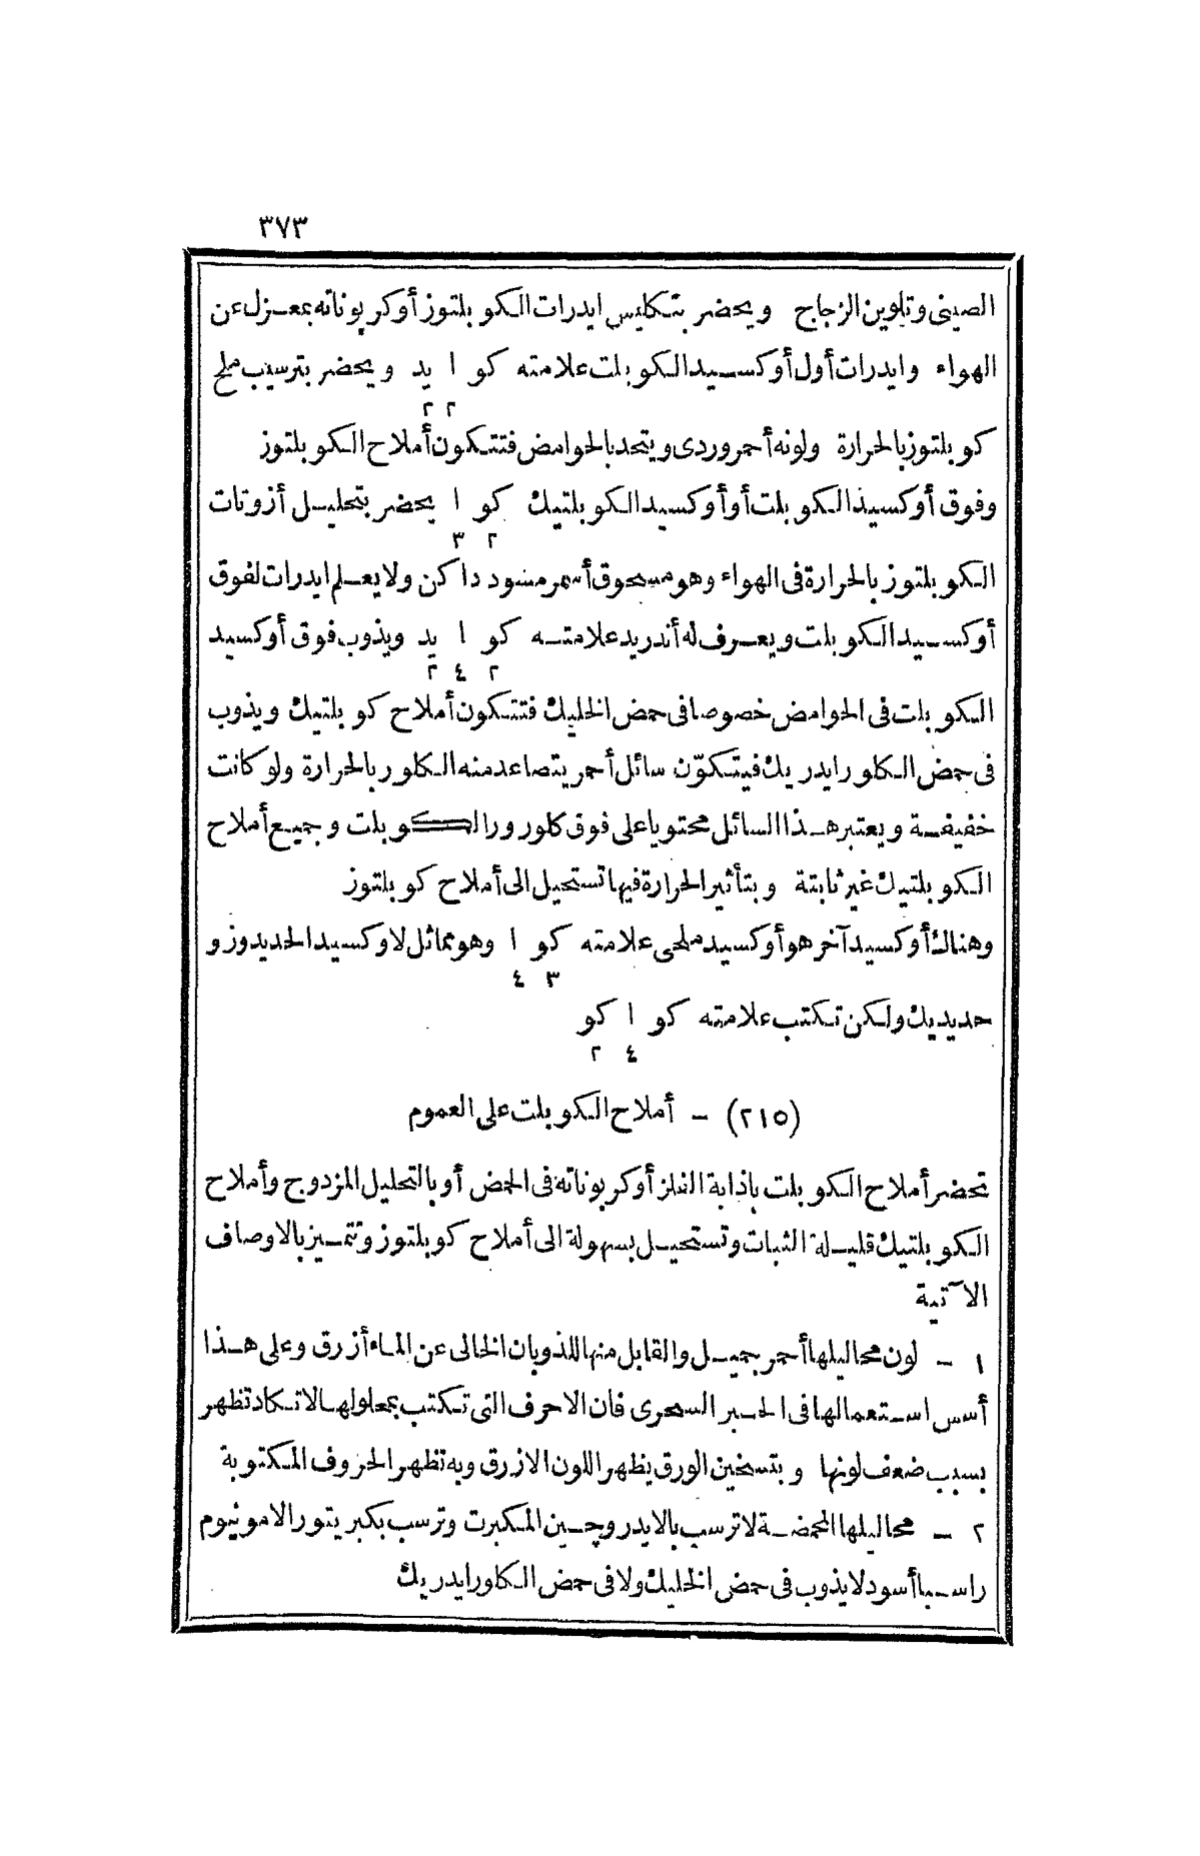 ٣٧٣
الصينى وتلوين الزجاج ويحضر بتكليس ايدرات الكوبلتوز أو كربوناته بمعزل عن
الهواء وايدرات أول أوكسيد الكوبلت علامته كو ا يد ويحضر بترسيب ملح
٢ ٢
كوبلتوز بالحرارة ولونه أحمر وردى ويتحد بالحوامض فتتكون أملاح الكوبلتوز
وفوق أوكسيد الكوبلت أو أوكسيد الكوبلتيك كو ا يحضر بتحليل أزوتات
٢ ٣
الكوبلتوز بالحرارة فى الهواء وهو مسحوق أسمر مسود داكن ولا يعلم ايدرات لفوق
أوكسيد الكوبلت ويعرف له أندريد علامته كو ا يد ويذوب فوق أوكسيد
٢ ٤ ٢
الكوبلت فى الحوامض خصوصا فى حمض الخليك فتتكون أملاح كوبلتيك ويذوب
فى حمض الكلورايدريك فيتكوّن سائل أحمر يتصاعد منه الكلور بالحرارة ولو كانت
خفيفة ويعتبر هذا السائل محتويا على فوق كلورور الكوبلت وجميع أملاح
الكوبلتيك غير ثابتة وبتأثير الحرارة فيها تستحيل الى أملاح كوبلتوز
وهناك أوكسيد آخر هو أوكسيد ملحى علامته كو ا وهو مماثل لاوكسيد الحديدوز و
٣ ٤
حديديك ولكن تكتب علامته كو ا كو
٤ ٢
(٢١٥) - أملاح الكوبلت على العموم
تحضر أملاح الكوبلت باذابة الفلز أو كربوناته فى الحمض أو بالتحليل المزدوج وأملاح
الكوبلتيك قليلة الثبات وتستحيل بسهولة الى أملاح كوبلتوز وتتميز بالاوصاف
الآتية
١ - لون محاليلها أحمر جميل والقابل منها للذوبان الخالى عن الماء أزرق وعلى هذا
أسس استعمالها فى الحبر السحرى فان الاحرف التى تكتب بمحلولها لا تكاد تظهر
بسبب ضعف لونها وبتسخين الورق يظهر اللون الازرق وبه تظهر الحروف المكتوبة
٢ - محاليلها المحمضة لا ترسب بالايدروچين المكبرت وترسب بكبريتور الامونيوم
راسبا أسود لا يذوب فى حمض الخليك ولا فى حمض الكلورايدريك